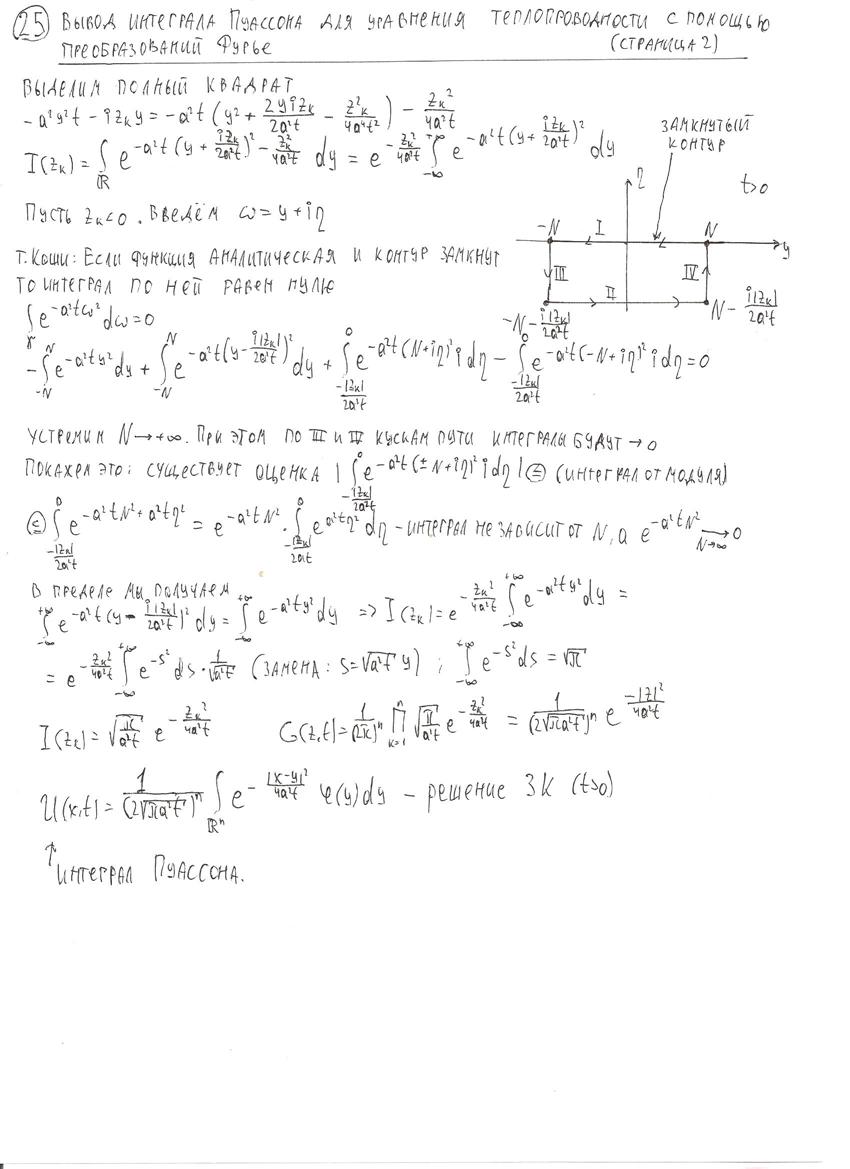 25 Вывод интеграла Пуассона для уравнения теплопроводности с помощью
преобразований Фурье (страница 2)
Выделим полный квадрат
-a²y²t - i z_k y = -a²t (y² + 2yiz_k/2a²t - z_k²/4a⁴t²) - z_k²/4a²t
I(z_k) = ∫_ℝ e^{-a²t (y + iz_k/2a²t)² - z_k²/4a²t} dy = e^{-z_k²/4a²t} ∫_{-∞}^{+∞} e^{-a²t(y + iz_k/2a²t)²} dy
замкнутый
контур
η
t>0
Пусть z_k<0. Введём ω = y + iη
-N I N y
III IV
II
-N - i|z_k|/2a²t N - i|z_k|/2a²t
т. Коши: Если функция аналитическая и контур замкнут
то интеграл по ней равен нулю
∫_γ e^{-a²tω²} dω = 0
-∫_{-N}^{N} e^{-a²ty²} dy + ∫_{-N}^{N} e^{-a²t(y - i|z_k|/2a²t)²} dy + ∫_{-|z_k|/2a²t}^{0} e^{-a²t(N+iη)²} i dη - ∫_{-|z_k|/2a²t}^{0} e^{-a²t(-N+iη)²} i dη = 0
Устремим N→+∞. При этом по III и IV кускам пути интегралы будут → 0
Покажем это: существует оценка |∫_{-|z_k|/2a²t}^{0} e^{-a²t(±N+iη)²} i dη| ≤ (интеграл от модуля)
≤ ∫_{-|z_k|/2a²t}^{0} e^{-a²tN² + a²tη²} = e^{-a²tN²} · ∫_{-|z_k|/2a²t}^{0} e^{a²tη²} dη - интеграл не зависит от N, а e^{-a²tN²} →_{N→∞} 0
В пределе мы получаем
∫_{-∞}^{+∞} e^{-a²t(y - i|z_k|/2a²t)²} dy = ∫_{-∞}^{+∞} e^{-a²ty²} dy => I(z_k) = e^{-z_k²/4a²t} ∫_{-∞}^{+∞} e^{-a²ty²} dy =
= e^{-z_k²/4a²t} ∫_{-∞}^{+∞} e^{-s²} ds · 1/√(a²t) (замена: s = √(a²t) y) ; ∫_{-∞}^{+∞} e^{-s²} ds = √π
I(z_k) = √(π/a²t) e^{-z_k²/4a²t} G(z,t) = 1/(2π)ⁿ ∏_{k=1}^{n} √(π/a²t) e^{-z_k²/4a²t} = 1/(2√(πa²t))ⁿ e^{-|z|²/4a²t}
U(x,t) = 1/(2√(πa²t))ⁿ ∫_{ℝⁿ} e^{-|x-y|²/4a²t} φ(y) dy - решение ЗК (t>0)
↑
интеграл Пуассона.